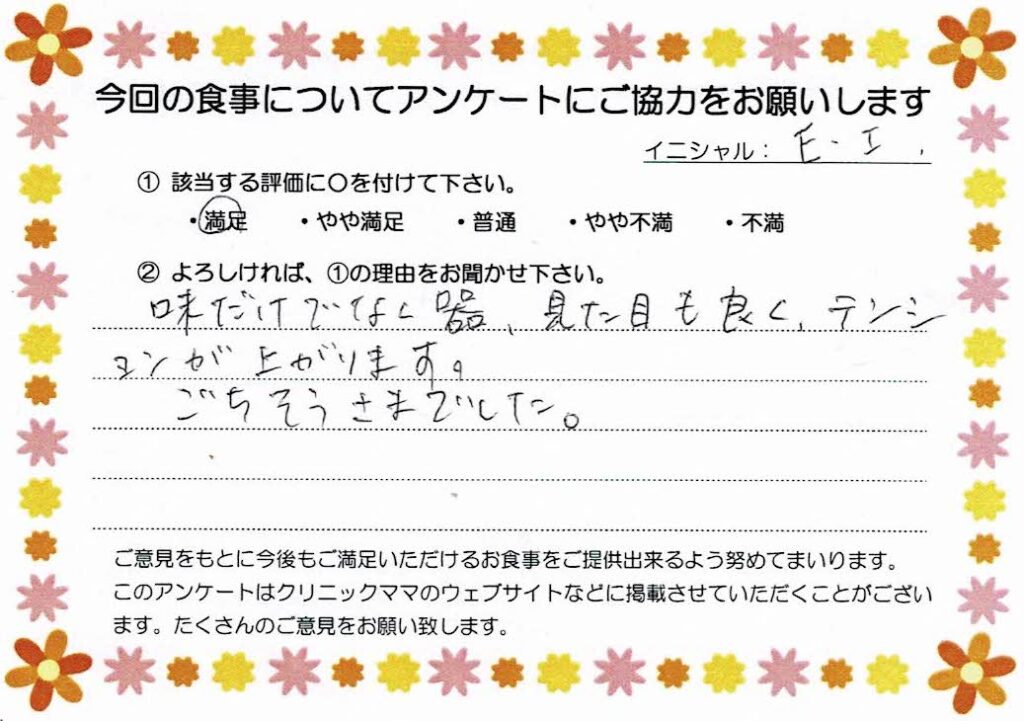 今回の食事についてアンケートにご協力をお願いします
イニシャル： E・I.
① 該当する評価に〇を付けて下さい。
・満足 ・やや満足 ・普通 ・やや不満 ・不満
② よろしければ、①の理由をお聞かせ下さい。
味だけでなく器、見た目も良く、テンシ
ョンが上がります。
ごちそうさまでした。
ご意見をもとに今後もご満足いただけるお食事をご提供出来るよう努めてまいります。
このアンケートはクリニックママのウェブサイトなどに掲載させていただくことがござい
ます。たくさんのご意見をお願い致します。